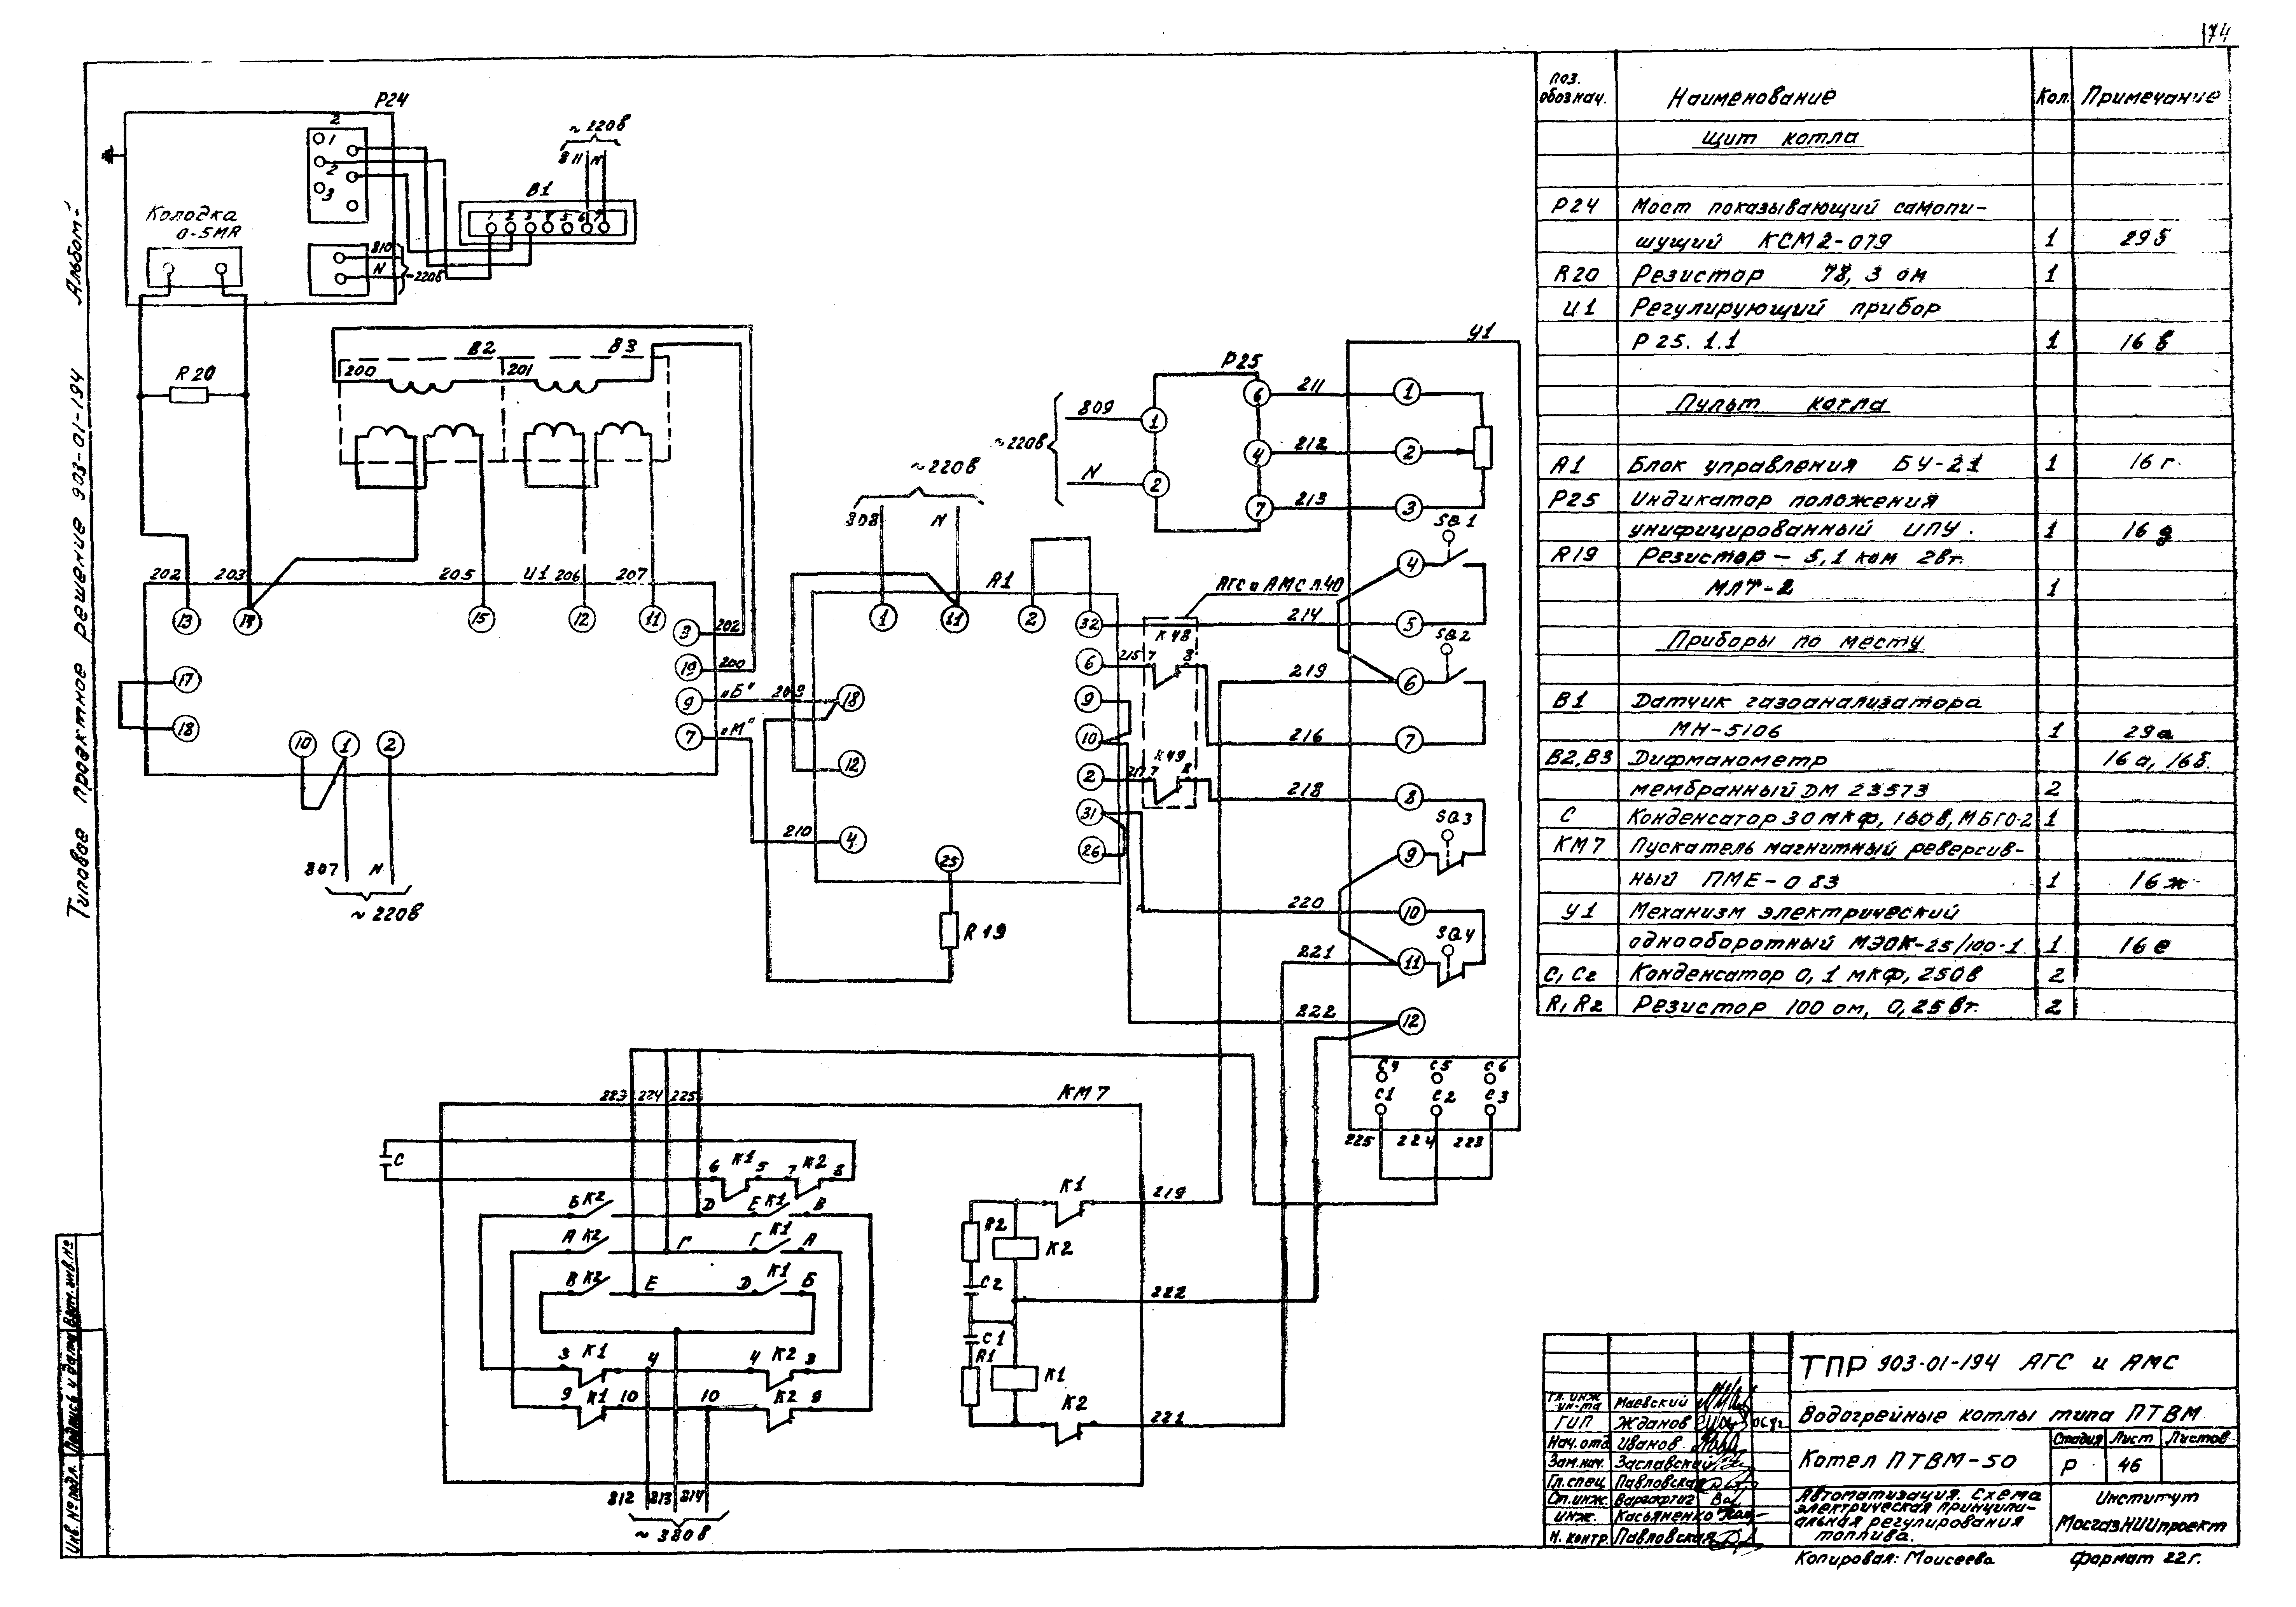 174
Типовое проектное решение 903-01-194 Альбом
P24
2
1
2
3
Колодка
0-5МА
810
N
~220в
~220в
811 N
В1
1 2 3 4 5 6 7
R20
В2
В3
200
201
202
203
205
И1
206
207
13
14
15
12
11
3
202
19
200
9
„Б"
209
7
„М"
210
17
18
10
1
2
807
N
~220в
~220в
808
N
А1
1
31
2
32
6
9
10
2
31
26
18
12
4
25
R19
P25
~220в
809
N
1
2
6
4
7
211
212
213
У1
1
2
3
4
5
6
7
8
9
10
11
12
SQ1
SQ2
SQ3
SQ4
АГС и АМС л.40
К48
К49
215 7 8
217 7 8
214
219
216
218
220
221
222
С4 С5 С6
С1 С2 С3
225 224 223
223 224 225
КМ7
С
6 К1 5 7 К2 8
Б К2
Д Е К1 В
А К2
Г Г К1 А
В К2
Е Д К1 Б
3 К1 4 4 К2 3
9 К1 10 10 К2 9
812 813 814
~380в
R2
К2
С2
С1
R1
К1
К1
К2
219
222
221
поз. обознач. Наименование Кол. Примечание
Щит котла
P24 Мост показывающий самопи-
шущий КСМ2-079 1 29б
R20 Резистор 78,3 ом 1
И1 Регулирующий прибор
Р 25.1.1 1 16в
Пульт котла
А1 Блок управления БУ-21 1 16г.
P25 Индикатор положения
унифицированный ИПУ. 1 16д
R19 Резистор — 5,1 ком 2вт.
МЛТ-2 1
Приборы по месту
В1 Датчик газоанализатора
МН-5106 1 29а
В2,В3 Дифманометр 16а, 16б.
мембранный ДМ 23573 2
С Конденсатор 30мкф, 160в, МБГО-2 1
КМ7 Пускатель магнитный реверсив-
ный ПМЕ-083 1 16ж
У1 Механизм электрический
однооборотный МЭОК-25/100-1 1 16е
С1 С2 Конденсатор 0,1 мкф, 250в 2
R1 R2 Резистор 100 ом, 0,25вт. 2
ТПР 903-01-194 АГС и АМС
Водогрейные котлы типа ПТВМ
Котел ПТВМ-50
Стадия Лист Листов
Р 46
Автоматизация. Схема
электрическая принципи-
альная регулирования
топлива.
Институт
МосгазНИИпроект
Гл. инж. ин-та Маевский
ГИП Жданов
Нач. отд Иванов
Зам.нач. Заславский
Гл.спец Павловская
Ст.инж. Варгафтиг
инж. Касьяненко
Н. контр. Павловская
Копировал: Моисеева формат 22г.
Инв.№ подл. Подпись и дата Взам.инв.№